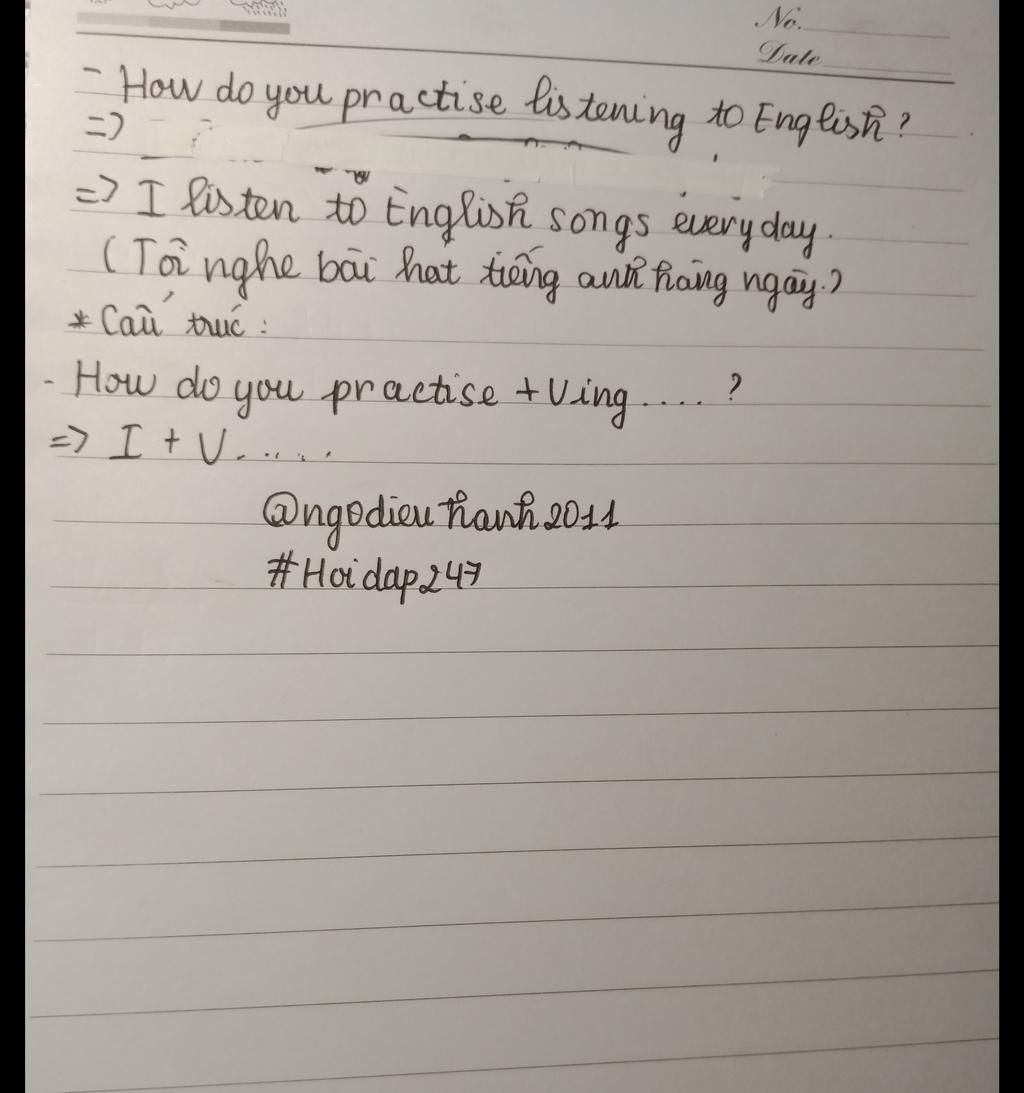 No.
Date
- How do you practise listening to English?
=>
=> I listen to English songs everyday.
(Tôi nghe bài hát tiếng anh hàng ngày.)
* Cấu trúc:
- How do you practise + Ving....?
=> I + V.....
@ngodieuthanh2011
#Hoidap247